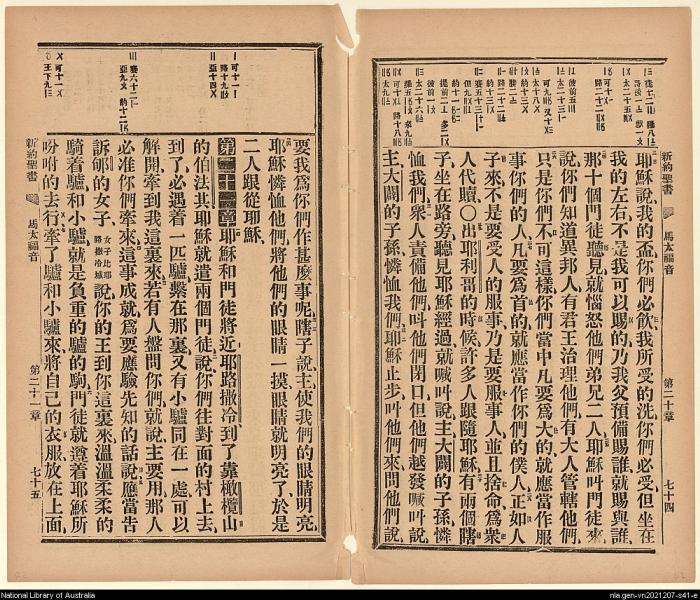 新約聖書
馬太福音
第二十章
七十四
耶穌說、我的盃你們必飲、我所受的洗你們必受但坐在
我的左右不是我可以賜的乃我父預備賜誰就賜與誰、
那十個門徒聽見就惱怒他們弟兄二人耶穌叫門徒來
說你們知道異邦人有君王治理他們有大人管轄他們、
只是你們不可這樣你們當中凡要爲大的就應當作服
事你們的人凡要爲首的就應當作你們的僕人正如人
子來不是要受人的服事乃是要服事人並且捨命爲衆
人代贖○出耶利哥的時候許多人跟隨耶穌有兩個瞎
子坐在路旁聽見耶穌經過就喊叫說主大闢的子孫憐
恤我們衆人責備他們叫他們閉口但他們越發喊叫說
主大闢的子孫憐恤我們耶穌止步叫他們來問他們說
要我爲你們作甚麽事呢瞎子說主、使我們的眼睛明亮、
耶穌憐恤他們將他們的眼睛一摸眼睛就明亮了於是
二人跟從耶穌、
第二十一章耶穌和門徒將近耶路撒冷到了靠橄欖山
的伯法其耶穌就遣兩個門徒說你們往對面的村上去
到了必遇着一匹驢繫在那裏又有小驢同在一處可以
解開牽到我這裏來若有人盤問你們就說主要用那人
必准你們牽來這事成就爲要應驗先知的話說應當告
訴郇的女子女子比耶路撒冷城說你的王到你這裏來溫溫柔柔的
騎着驢和小驢就是負重的驢的駒門徒就遵着耶穌所
吩咐的去行牽了驢和小驢來將自己的衣服放在上面
新約聖書
馬太福音
第二十一章
七十五
National Library of Australia
nla.gen-vn2021207-s41-e